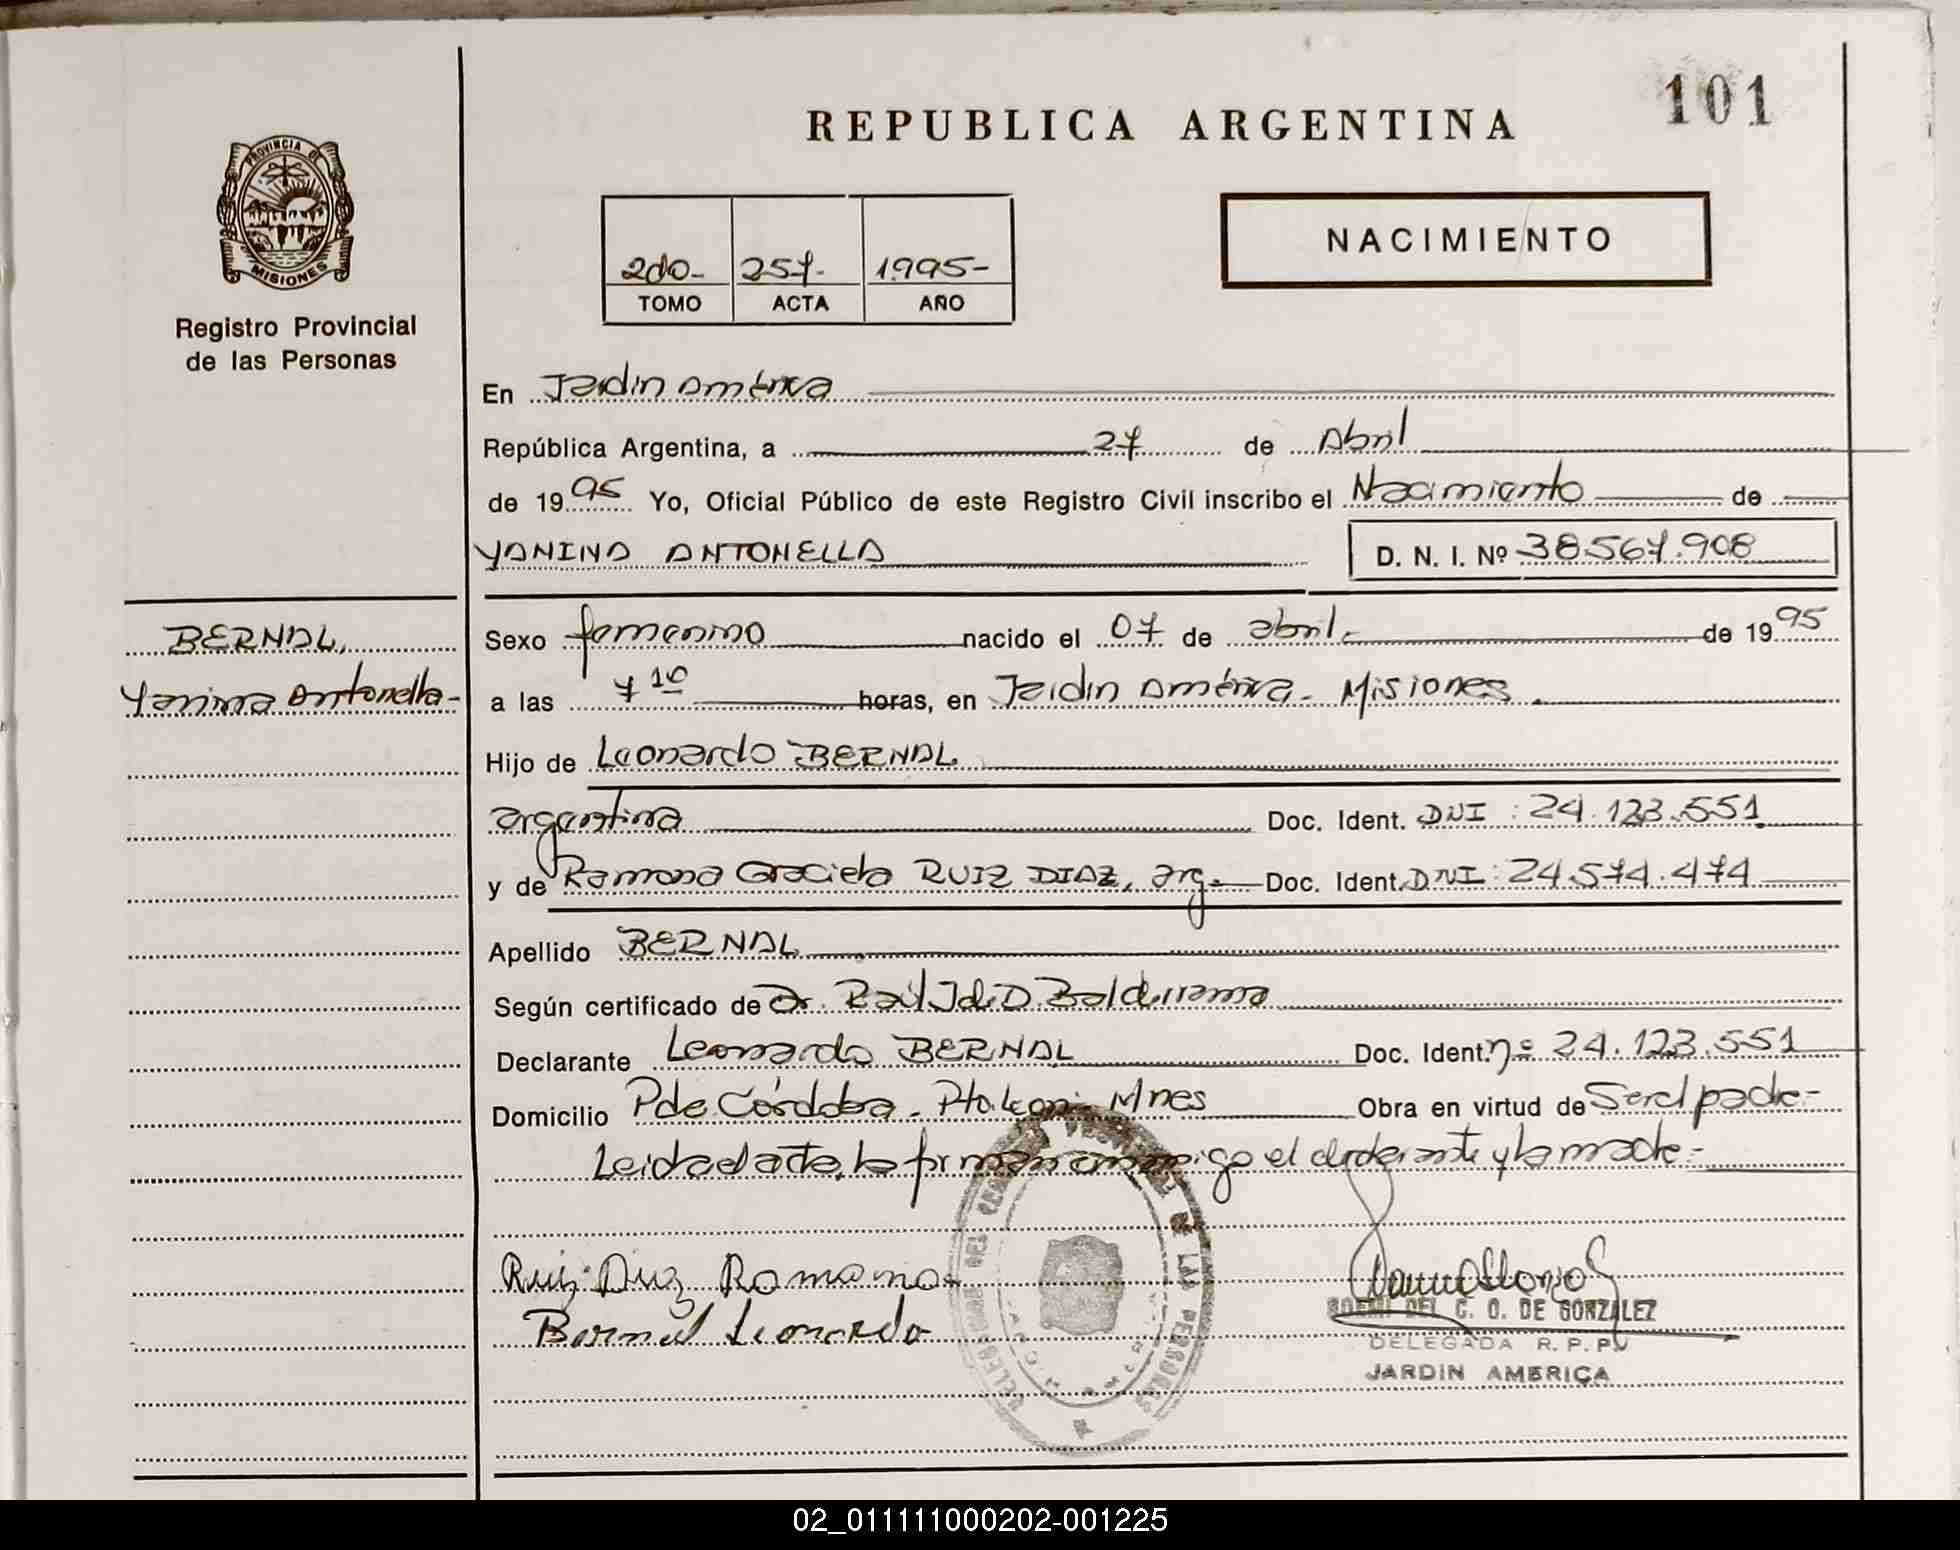 101
REPUBLICA ARGENTINA
PROVINCIA DE
MISIONES
Registro Provincial
de las Personas
NACIMIENTO
2do- 257- 1995-
TOMO ACTA AÑO
En Jardin América
República Argentina, a 27 de Abril
de 1995 Yo, Oficial Público de este Registro Civil inscribo el Nacimiento de
YANINA ANTONELLA D. N. I. Nº 38.567.908
BERNAL,
Yanina Antonella-
Sexo femenino nacido el 07 de abril.- de 1995
a las 7 10 horas, en Jardin América - Misiones
Hijo de Leonardo BERNAL
argentina Doc. Ident. DNI : 24.123.551
y de Ramona Graciela RUIZ DIAZ, arg. Doc. Ident. DNI: 24.574.474
Apellido BERNAL
Según certificado de Dr. Raúl D. Balderrama
Declarante Leonardo BERNAL Doc. Ident. nº 24.123.551
Domicilio Pde. Córdoba - Pto. Leoni - Mnes Obra en virtud de Ser el padre-
Leida el acta, la firman conmigo el declarante y la madre-
Ruiz Diaz Ramona
Bernal Leonardo
DEL C. O. DE GONZALEZ
DELEGADA R. P. P.
JARDIN AMERICA
DE LAS PERSONAS
02_011111000202-001225